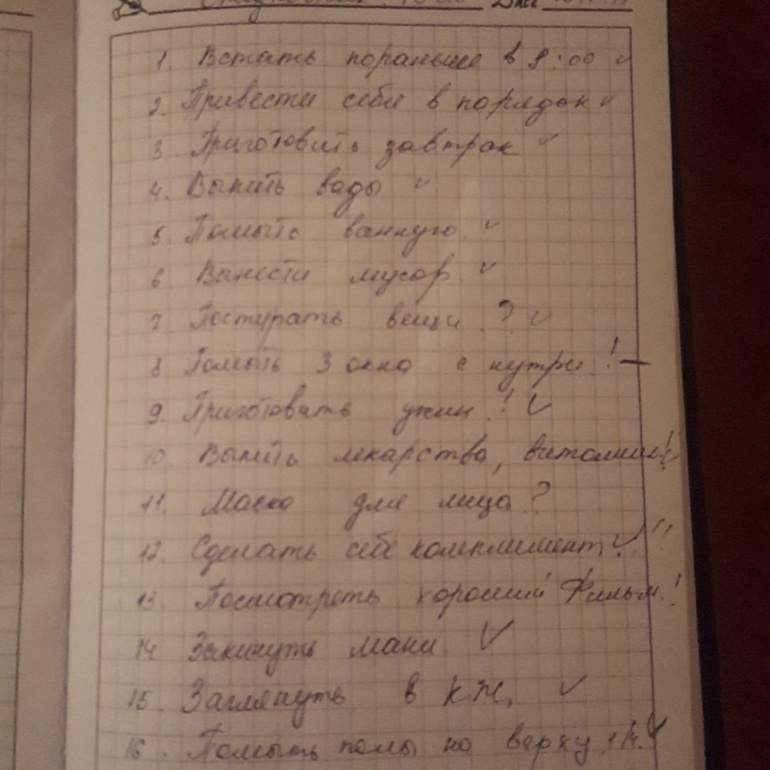 1. Встать пораньше в 9:00 ✓
2. Привести себя в порядок ✓
3 Приготовить завтрак ✓
4. Выпить воды ✓
5. Помыть ванную. ✓
6 Вынести мусор. ✓
7 Постирать вещи ? ✓
8 Помыть 3 окна с нутри ! —
9. Приготовить ужин ! ✓
10. Выпить лекарства, витамины!
11. Маска для лица?
12 Сделать себе комплимент ✓!!
13 Посмотреть хороший Фильм!
14 Закинуть мани ✓
15 Заглянуть в КН. ✓
16. Помыть полы на верху ✓